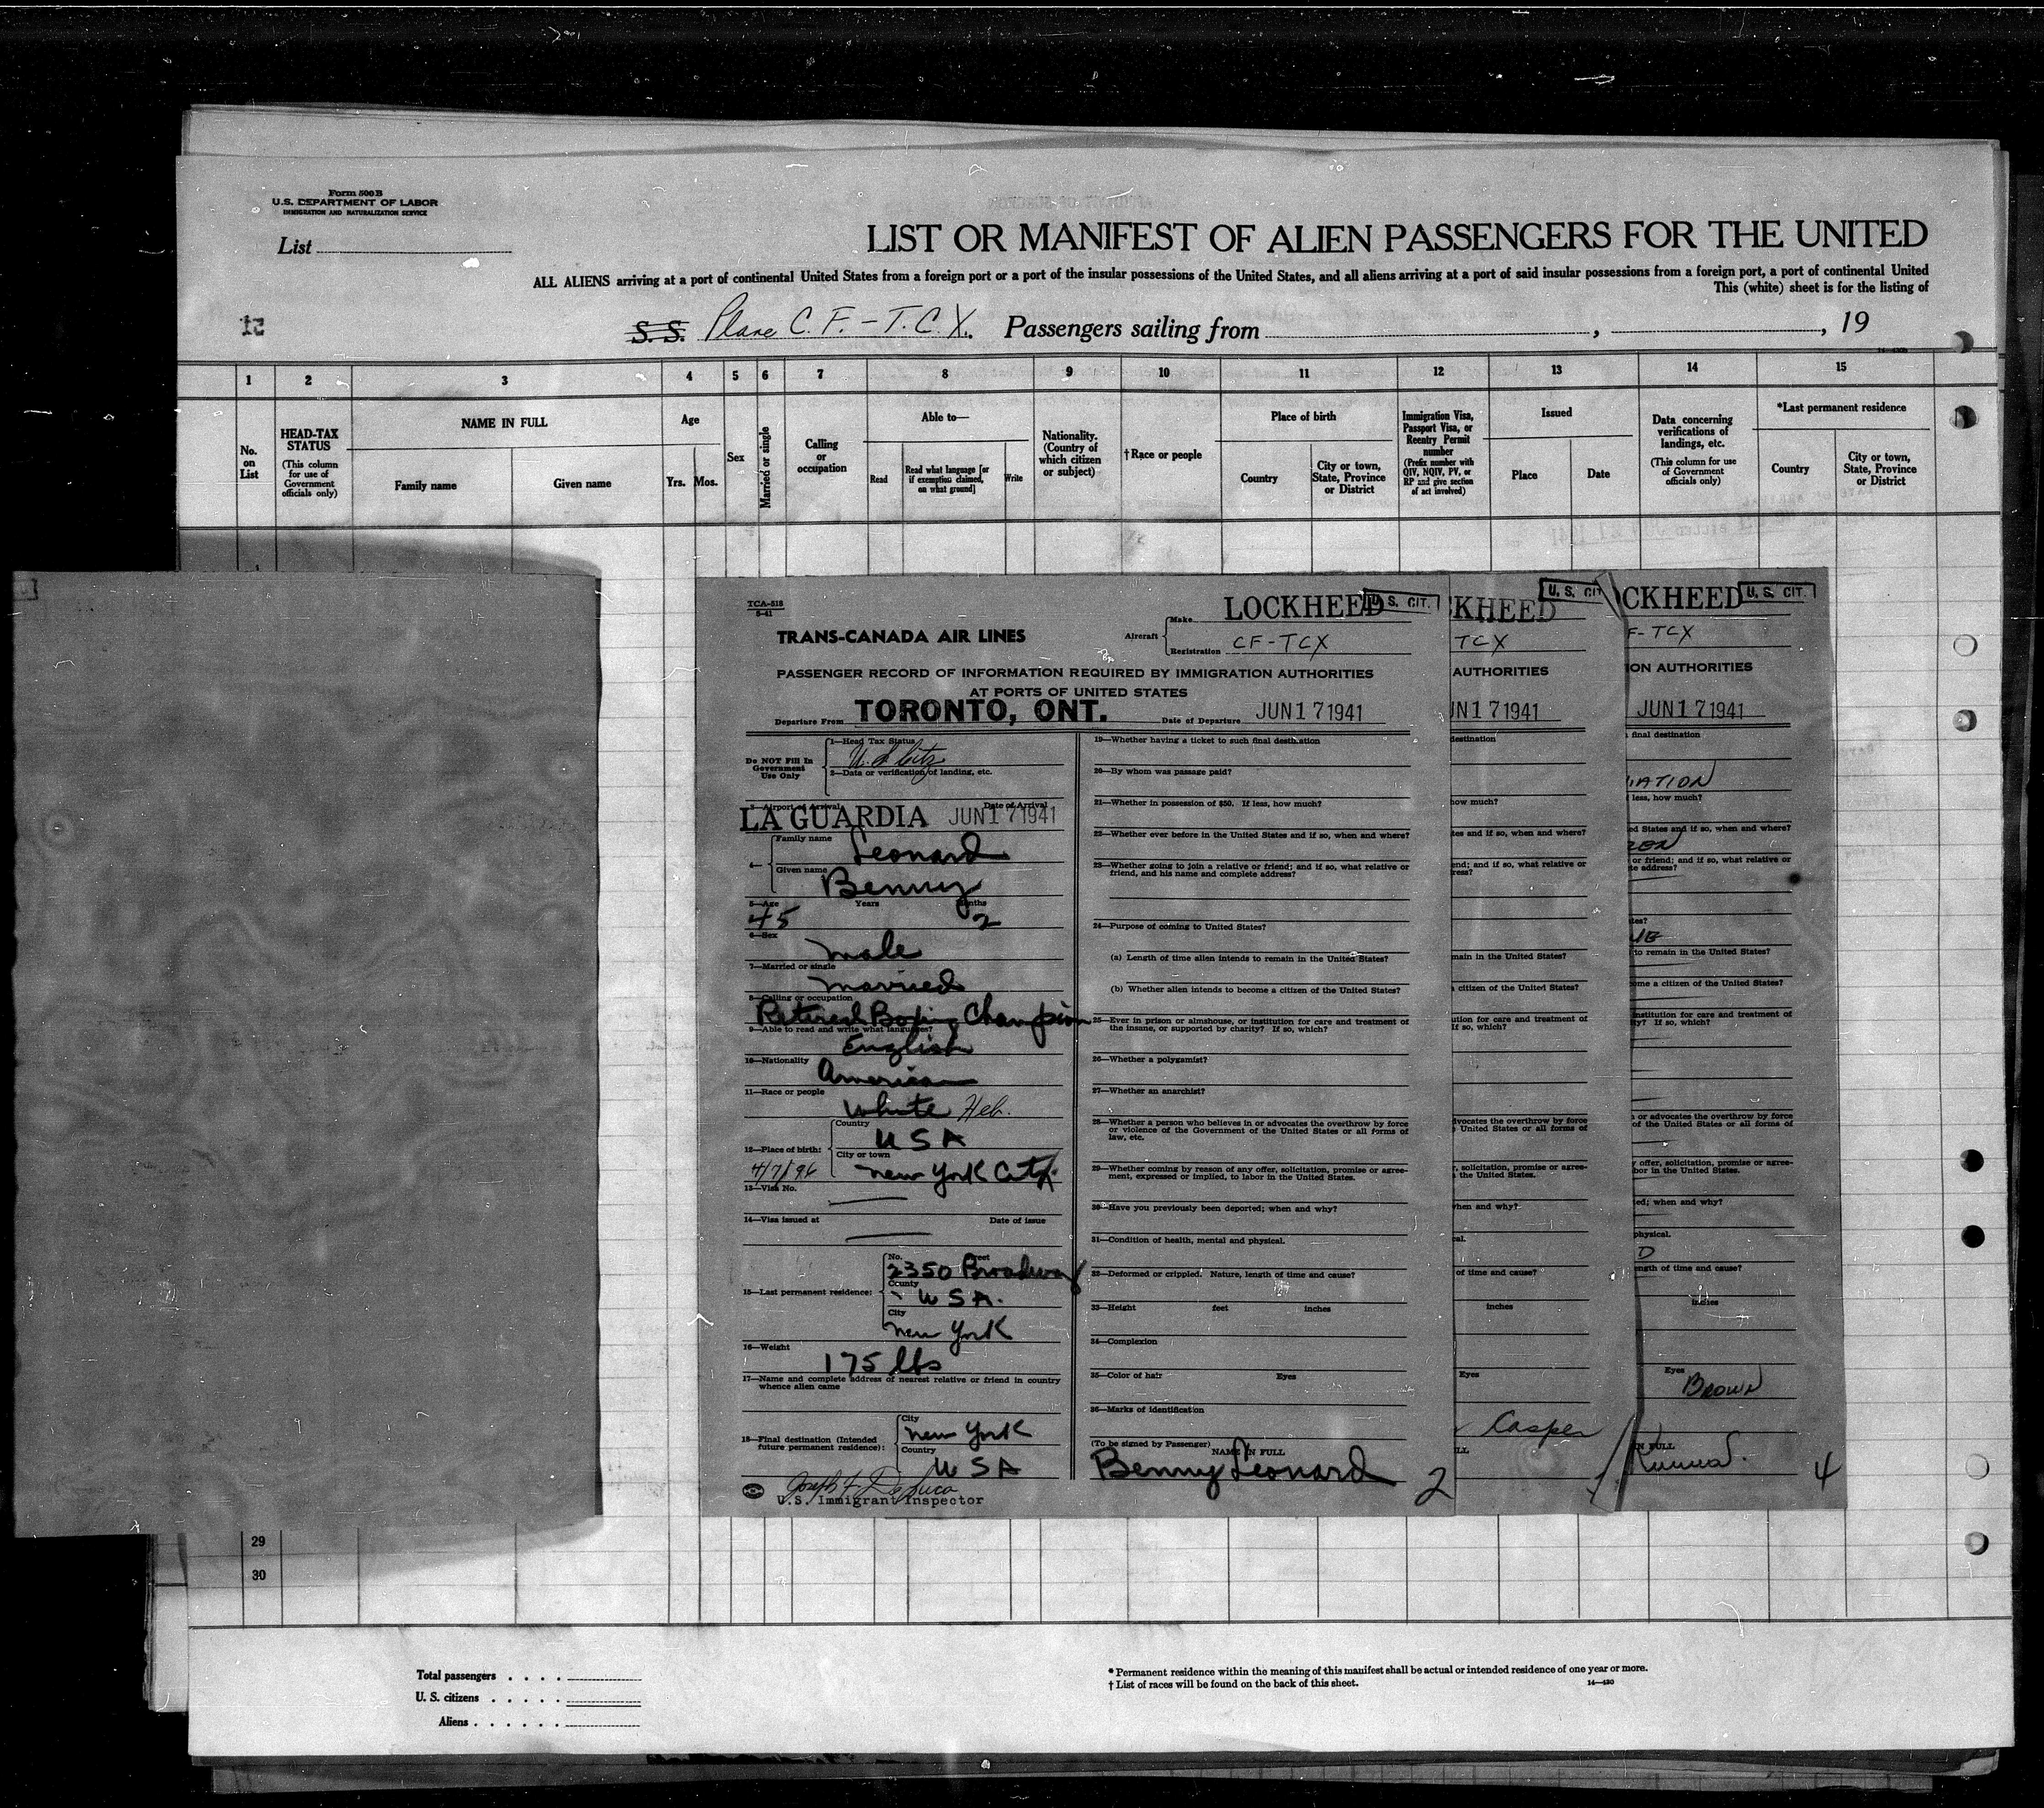 Form 500 B
U.S. DEPARTMENT OF LABOR
IMMIGRATION AND NATURALIZATION SERVICE
List
LIST OR MANIFEST OF ALIEN PASSENGERS FOR THE UNITED
ALL ALIENS arriving at a port of continental United States from a foreign port or a port of the insular possessions of the United States, and all aliens arriving at a port of said insular possessions from a foreign port, a port of continental United
This (white) sheet is for the listing of
S. S. Plane C. F. - T. C. X. Passengers sailing from , , 19
1 2 3 4 5 6 7 8 9 10 11 12 13 14 15
No. on List
HEAD-TAX STATUS
(This column for use of Government officials only)
NAME IN FULL
Family name Given name
Age
Yrs. Mos.
Sex
Married or single
Calling or occupation
Able to—
Read
Read what language [or if exemption claimed, on what ground]
Write
Nationality. (Country of which citizen or subject)
†Race or people
Place of birth
Country
City or town, State, Province or District
Immigration Visa, Passport Visa, or Reentry Permit number
(Prefix number with QIV, NQIV, PV, or RP and give section of act involved)
Issued
Place Date
Data concerning verifications of landings, etc.
(This column for use of Government officials only)
*Last permanent residence
Country
City or town, State, Province or District
TCA-518
5-41
TRANS-CANADA AIR LINES
Aircraft
Make LOCKHEED
U. S. CIT.
Registration CF-TCX
PASSENGER RECORD OF INFORMATION REQUIRED BY IMMIGRATION AUTHORITIES
AT PORTS OF UNITED STATES
Departure From TORONTO, ONT. Date of Departure JUN 17 1941
Do NOT Fill In Government Use Only
1—Head Tax Status
U. S. Citz
2—Data or verification of landing, etc.
3—Airport of Arrival Date of Arrival
LA GUARDIA JUN 17 1941
4—
Family name
Leonard
Given name
Benny
5—Age Years Months
45 2
6—Sex
male
7—Married or single
married
8—Calling or occupation
Retired Boxing Champion
9—Able to read and write what languages?
English
10—Nationality
American
11—Race or people
White Heb.
12—Place of birth:
Country
USA
City or town
4/7/96 New York City
13—Visa No.
14—Visa issued at Date of issue
15—Last permanent residence:
No. Street
2350 Broadway
County
USA.
City
New York
16—Weight
175 lbs
17—Name and complete address of nearest relative or friend in country
whence alien came
18—Final destination (Intended
future permanent residence):
City
New York
Country
USA
Joseph F. DeLuca
U.S. Immigrant Inspector
19—Whether having a ticket to such final destination
20—By whom was passage paid?
21—Whether in possession of $50. If less, how much?
22—Whether ever before in the United States and if so, when and where?
23—Whether going to join a relative or friend; and if so, what relative or
friend, and his name and complete address?
24—Purpose of coming to United States?
(a) Length of time alien intends to remain in the United States?
(b) Whether alien intends to become a citizen of the United States?
25—Ever in prison or almshouse, or institution for care and treatment of
the insane, or supported by charity? If so, which?
26—Whether a polygamist?
27—Whether an anarchist?
28—Whether a person who believes in or advocates the overthrow by force
or violence of the Government of the United States or all forms of
law, etc.
29—Whether coming by reason of any offer, solicitation, promise or agree-
ment, expressed or implied, to labor in the United States.
30—Have you previously been deported; when and why?
31—Condition of health, mental and physical.
32—Deformed or crippled. Nature, length of time and cause?
33—Height feet inches
34—Complexion
35—Color of hair Eyes
36—Marks of identification
(To be signed by Passenger)
NAME IN FULL
Benny Leonard
2
KHEED
U. S. CIT
TCX
AUTHORITIES
UN 17 1941
destination
how much?
tes and if so, when and where?
end; and if so, what relative or
ress?
main in the United States?
citizen of the United States?
ution for care and treatment of
If so, which?
dvocates the overthrow by force
United States or all forms of
, solicitation, promise or agree-
the United States.
when and why?
cal.
of time and cause?
inches
Eyes
Casper
LL
1
CKHEED
U. S. CIT.
F-TCX
ION AUTHORITIES
JUN 17 1941
final destination
IATION
less, how much?
ed States and if so, when and where?
or friend; and if so, what relative or
te address?
tes?
to remain in the United States?
ome a citizen of the United States?
institution for care and treatment of
ty? If so, which?
or advocates the overthrow by force
of the United States or all forms of
y offer, solicitation, promise or agree-
bor in the United States.
ed; when and why?
physical.
D
ength of time and cause?
inches
Eyes
Brown
IN FULL
4
29
30
Total passengers
U. S. citizens
Aliens
* Permanent residence within the meaning of this manifest shall be actual or intended residence of one year or more.
† List of races will be found on the back of this sheet.
14—430